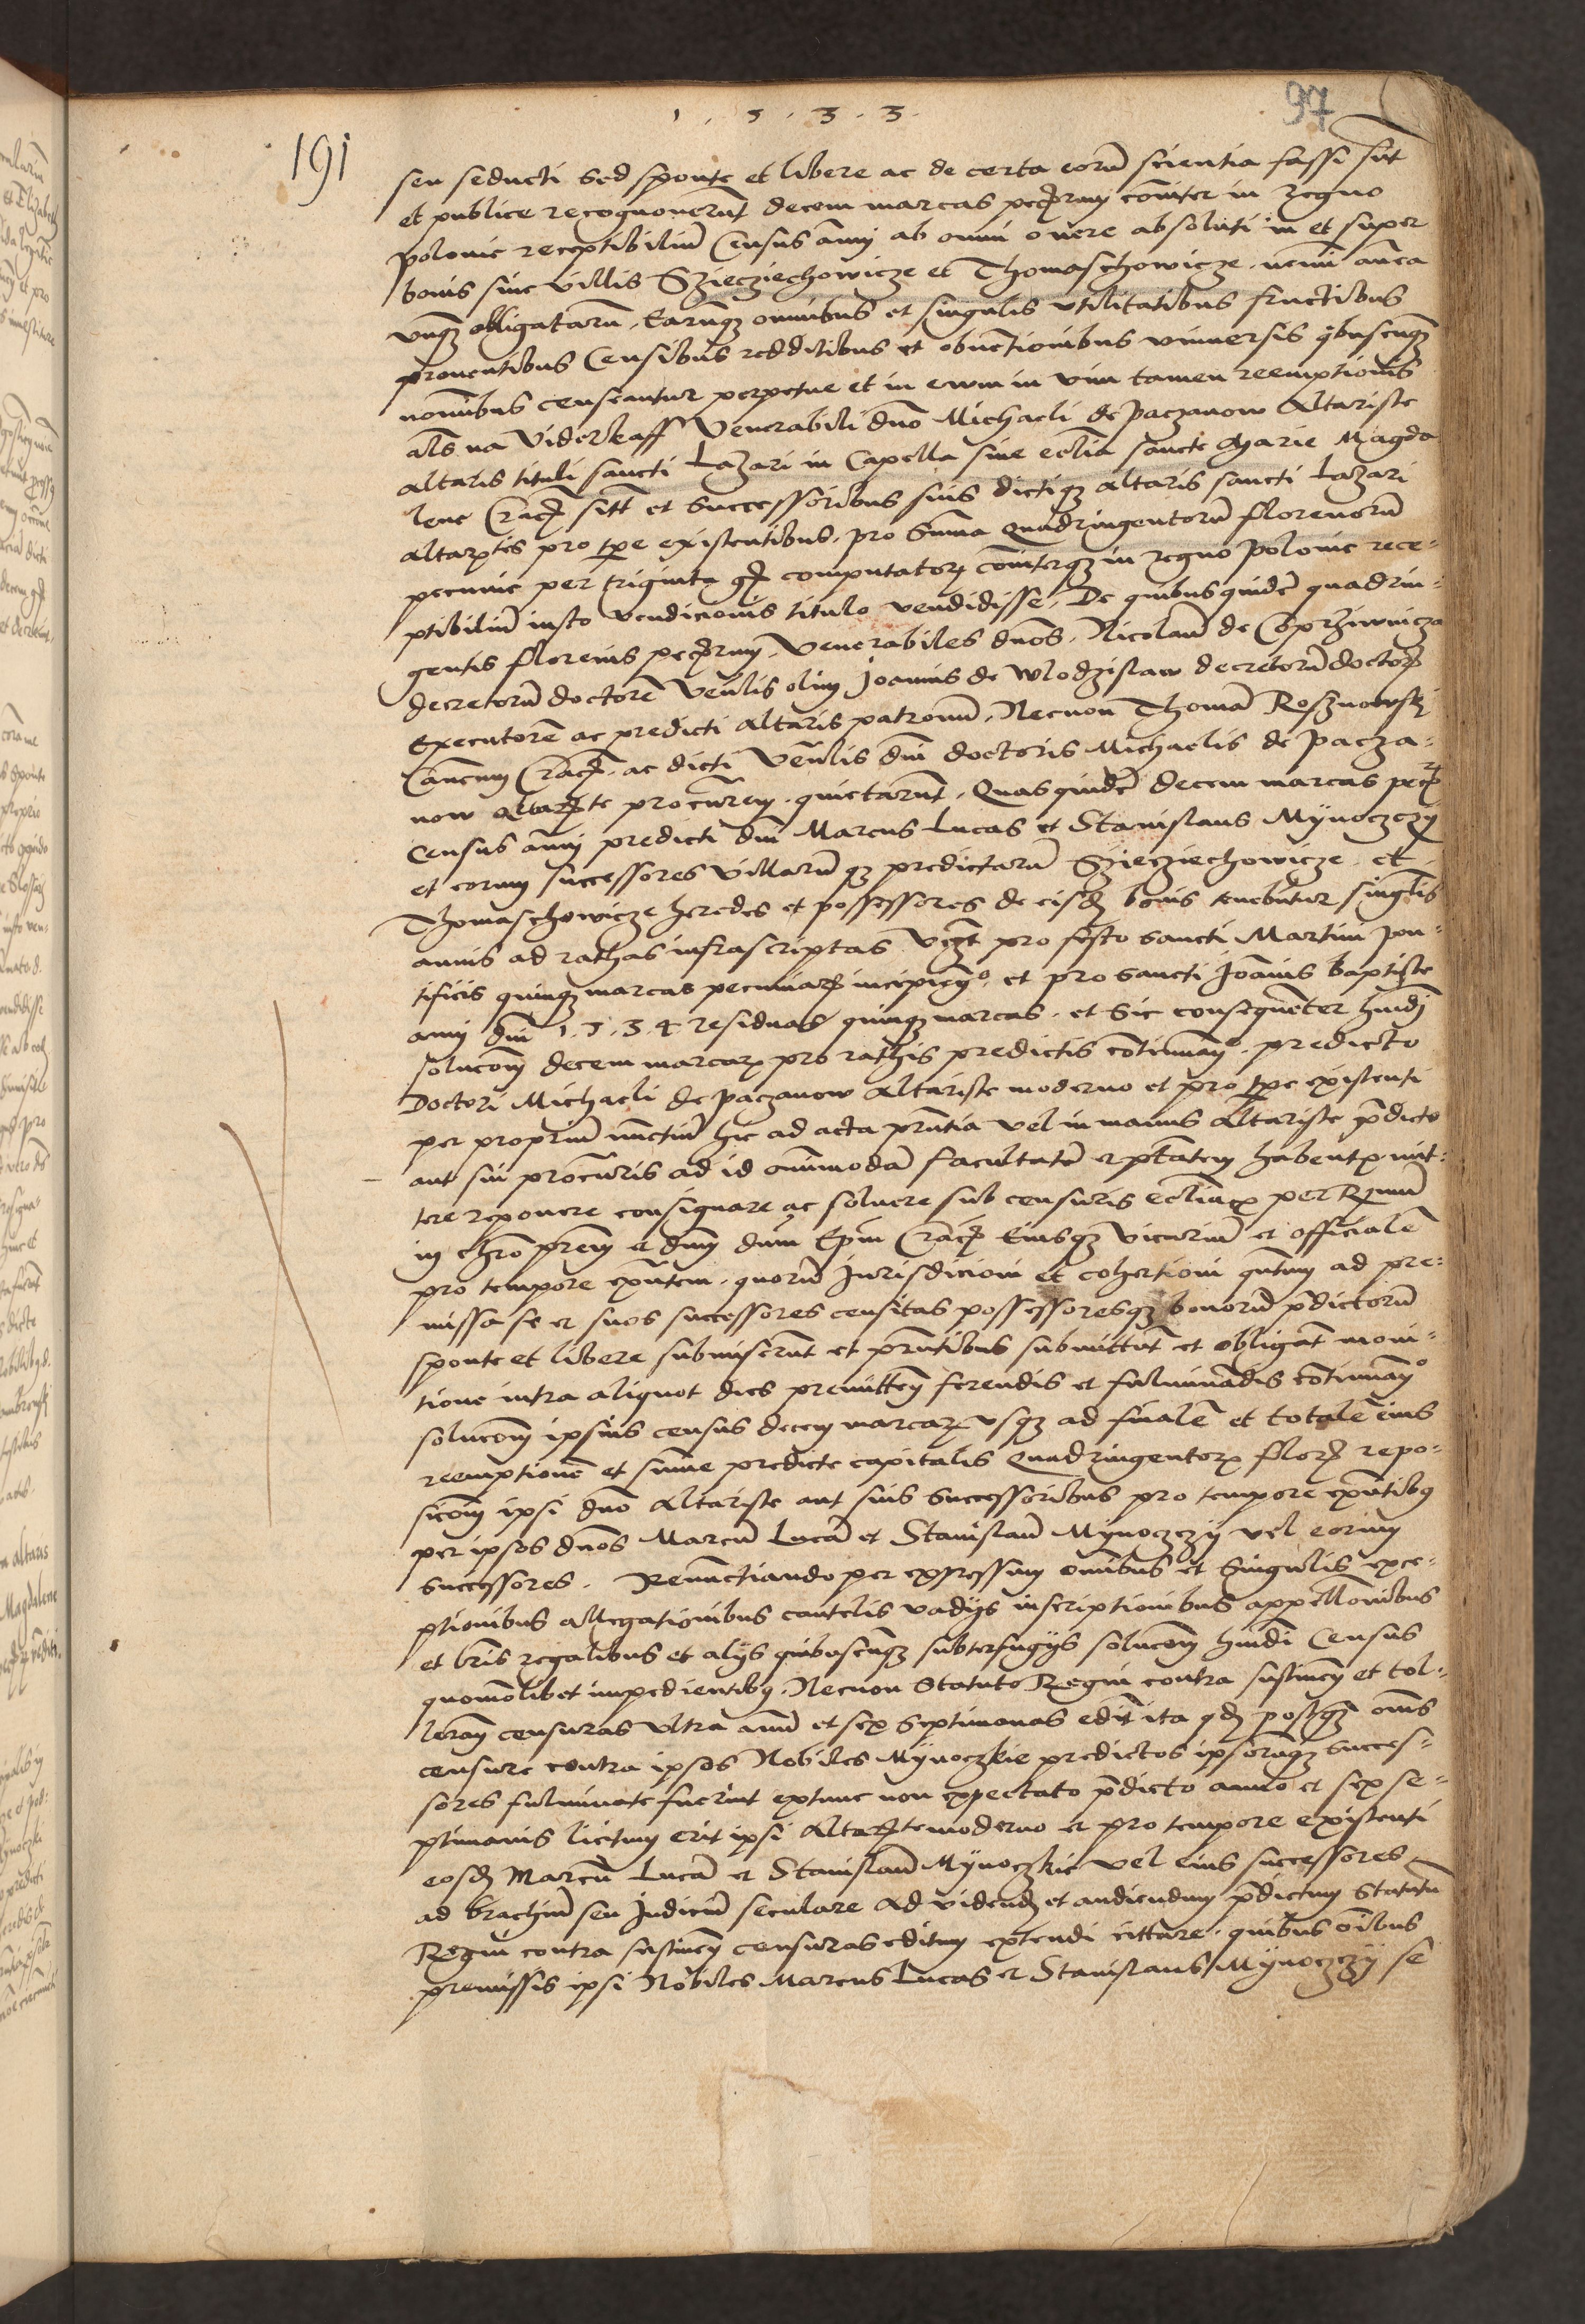 1 . 5 . 3 . 3 .
97
191
seu seducti sed sponte et libere ac de certa eorū scientia fassi sūt
et publice recognouerūt decem marcas pecūiarum cōiter in regno
polonie receptibiliū Census ānui ab omni onere absoluti in et super
bonis siue villis Sczieczieychowicze et Thomaschowicze nemini antea
vnqȝ obligatarū, Earūqȝ omnibus et singulis vtilitatibus fructibus
prouentibus Censibus redditibus et obuētionibus vniuersis qbuscūqȝ
nominibus censeantur perpetue et in ewm in vim tamen reemptionis
als na viderkaff Venerabili dno Michaeli de Paczanow Altariste
altaris tituli sancti Lazari in Capella siue ecclia sancte Marie Magda
lene Crac̄ sitī et successoribus suis dictiqȝ altaris sancti Lazari
altaristis pro tpe existentibus, pro Summa Quadringentorū florenorū
pecunie per triginta gr̄ computatoꝝ cōiterqȝ in regno polonie rece-
ptibiliū iusto vendicionis titulo vendidisse, De quibusquidē quadrin-
gentis florenis pecūiarum, Venerabiles dnos, Nicolaū de Coprziwnicza
decretorū doctorē Venlis olim Joannis de Wlodzislaw decretorū doctoris
Executorē ac predicti altaris patronū, Necnon Thomā Rosznowsky
Canōcum Crac̄, ac dicti Venlis dni doctoris Michaelis de pacza-
now altariste procūrem, quietarūt, Quasquidē decem marcas pecūiaꝝ
Census ānui predicti dni Marcus Lucas et Stanislaus Mynoczczy
et eorum successores villarū qȝ predictarū Sczieczieychowicze et
Thomaschowicze heredes et possessores de eisdē bonis tenebūtur singlis
annis ad rathas infrascriptas vz pro festo sancti Martini pon-
tificis quinqȝ marcas pecuniaꝝ incipiēdo, et pro sancti Joānis baptiste
anni dni 1 . 5 . 3 . 4 residuas quinqȝ marcas, et sic consequēter hmoi
solucōem decem marcaꝝ pro rathis predictis cōtinuādo, predicto
Doctori Michaeli de paczanow Altariste moderno et pro tpe existenti
per propriū nunctiū hic ad acta prntia vel in manus altariste p̄dicto
aut sui procūris ad id omnimodā facultatē et ptātem habentꝭ mit-
tere reponere consignare ac soluere sub censuris ecclīaꝝ per Rndū
in chro prem et dnm dnm Epm Crac̄ Eiusqȝ vicariū et officialē
pro tempore exn̄tem, quorū Jurisdicioni et cohertioni quātum ad pre-
missa se et suos successores censitas possessoresqȝ bonorū p̄dictorū
sponte et libere submiserūt et prn̄tibus submittūt et obligāt moni-
tione intra aliquot dies premittēn ferendis et fulminādis cōtinuādo
solucōem ipsius census decem marcaꝝ vsqȝ ad finalē et totalē eius
reemptionē et sūme predicte capitalis Quadringentoꝝ floꝝ repo-
sicōem ipsi dno Altariste aut suis successoribus pro tempore exn̄tibȝ
per ipsos dnos Marcū Lucā et Stanislaū Mynoczczy vel eorum
successores. Renunctiando per expressum omībus et singulis exce-
ptionibus allegationibus cautelis vadys inscriptionibus appellōnibus
et brīs regalibus et alys quibuscūqȝ subterfugys solucōem hmoi Census
quomōlibet impedientibȝ, Necnon Statuto Regni contra sustinēn et tol-
lerān censuras vltra annū et sex septimanas edit ita qd postqȝ oms
censure contra ipsos Nobiles Mynoczkie predictos ipsorūqȝ succes-
sores fulminate fuerint extunc non expectato p̄dicto anno et sex se-
ptimanis licitum erit ipsi altariste moderno et pro tempore existenti
eosd Marcū Lucā et Stanislaū Mynoczkie vel eius successores
ad brachiū seu Judiciū seculare ad vidend et audiendum p̄dictum Statutū
Regni contra sustinēn censuras editum extendi cittare, quibus oibus
premissis ipsi Nobiles Marcus Lucas et Stanislaus Mynoczczy se